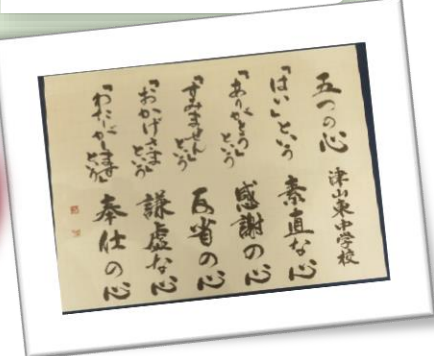 五つの心 津山東中学校
「はい」という 素直な心
「ありがとう」という 感謝の心
「すみません」という 反省の心
「おかげさま」という 謙虚な心
「わたしがします」という 奉仕の心